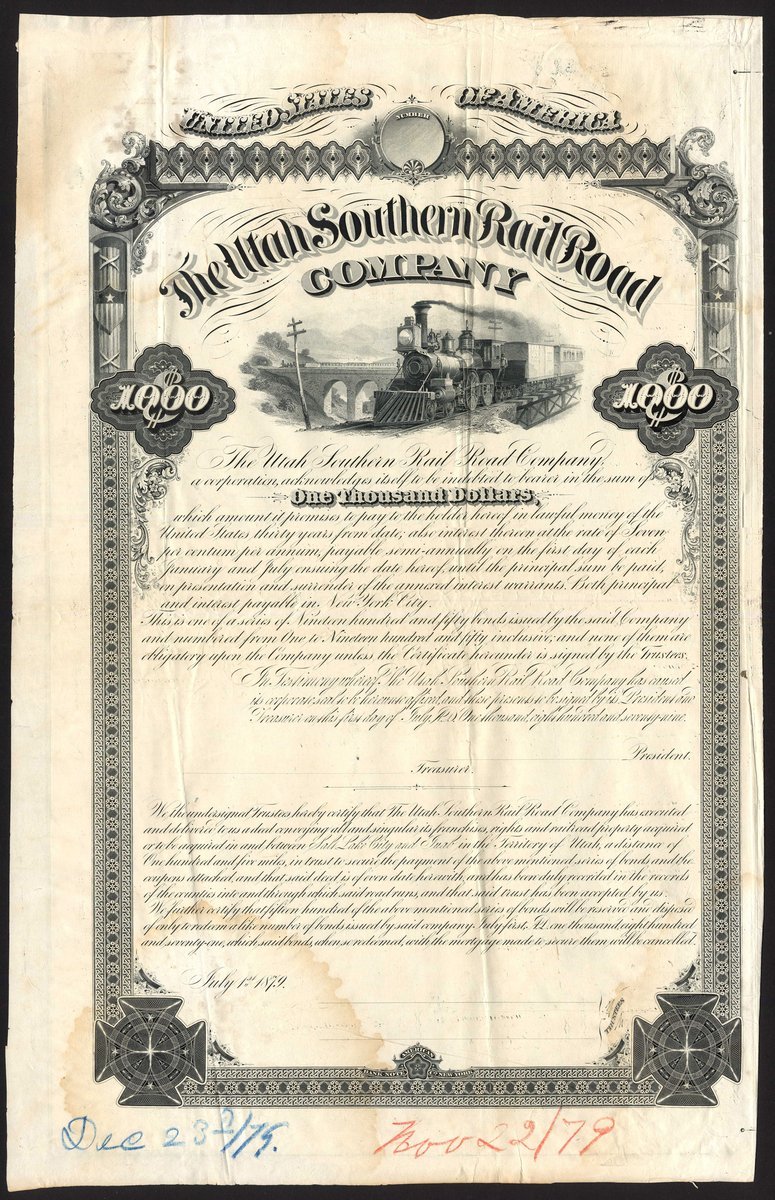 UNITED STATES OF AMERICA
NUMBER
The Utah Southern Rail Road
COMPANY
$1000 $1000
The Utah Southern Rail Road Company,
a corporation, acknowledges itself to be indebted to bearer in the sum of
One Thousand Dollars,
which amount it promises to pay to the holder hereof in lawful money of the
United States thirty years from date; also interest thereon at the rate of Seven
per centum per annum, payable semi-annually on the first day of each
January and July ensuing the date hereof, until the principal sum be paid,
on presentation and surrender of the annexed interest warrants. Both principal
and interest payable in New York City.
This is one of a series of Nineteen hundred and fifty bonds issued by the said Company
and numbered from One to Nineteen hundred and fifty inclusive; and none of them are
obligatory upon the Company unless the Certificate hereunder is signed by the Trustees.
In Testimony whereof The Utah Southern Rail Road Company has caused
its corporate seal to be hereunto affixed, and these presents to be signed by its President and
Treasurer on this first day of July, A.D. One thousand, eight hundred and seventy-nine.
President.
Treasurer.
We the undersigned Trustees hereby certify that The Utah Southern Rail Road Company has executed
and delivered to us a deed conveying all and singular its franchises, rights and railroad property acquired
or to be acquired in and between Salt Lake City and Juab in the Territory of Utah, a distance of
One hundred and five miles, in trust to secure the payment of the above mentioned series of bonds and the
coupons attached, and that said deed is of even date herewith, and has been duly recorded in the records
of the counties into and through which said road runs, and that said trust has been accepted by us.
We further certify that fifteen hundred of the above mentioned series of bonds will be reserved and disposed
of only to redeem a like number of bonds issued by said company July first, A.D. one thousand eight hundred
and seventy-one, which said bonds, when so redeemed, with the mortgage made to secure them will be cancelled.
July 1st 1879.
TRUSTEES
AMERICAN
BANK NOTE CO. NEW YORK
Dec 23 /79.
Nov 22/79